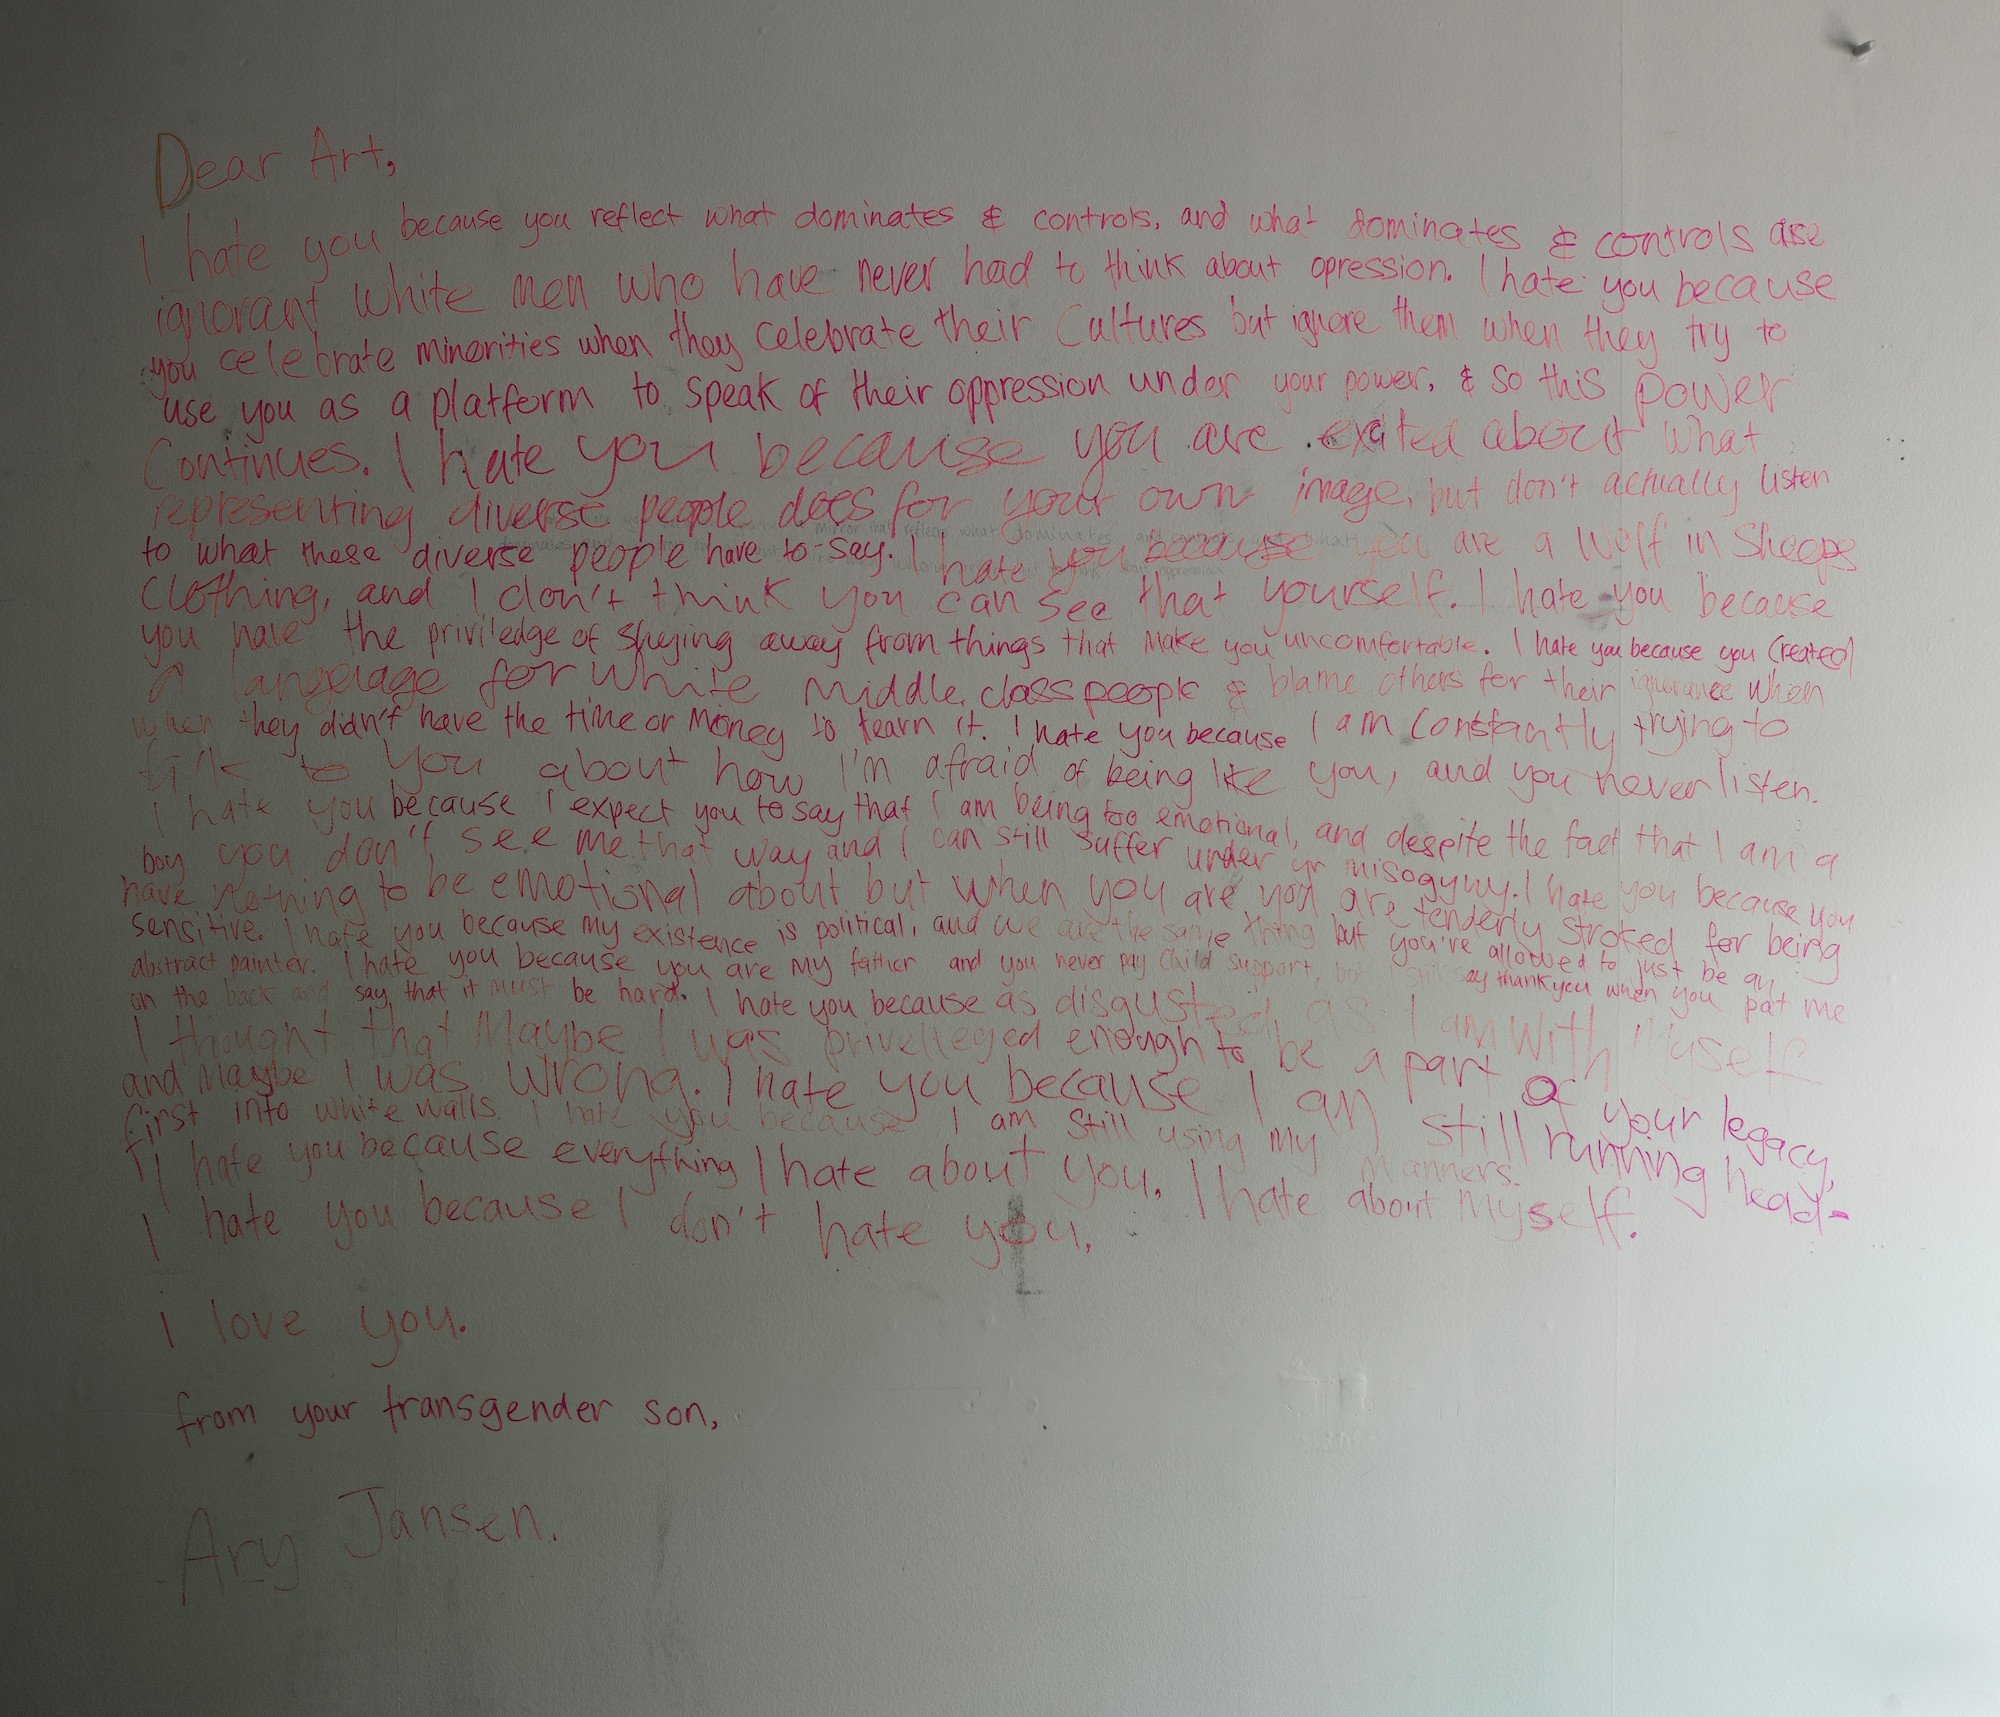 Dear Art,
I hate you because you reflect what dominates & controls, and what dominates & controls are
ignorant white men who have never had to think about opression. I hate you because
you celebrate minorities when they celebrate their Cultures but ignore them when they try to
use you as a platform to speak of their oppression under your power, & so this power
Continues. I hate you because you are exited about what
representing diverse people does for your own image, but don't actually listen
to what these diverse people have to say. I hate you because you are a wolf in sheeps
Clothing, and I don't think you can see that yourself. I hate you because
you have the priviledge of shying away from things that make you uncomfortable. I hate you because you created
a language for white middle class people & blame others for their ignorance when
when they didn't have the time or money to learn it. I hate you because I am constantly trying to
talk to you about how I'm afraid of being like you, and you never listen.
I hate you because I expect you to say that I am being too emotional, and despite the fact that I am a
boy you don't see me that way and I can still suffer under yr misogyny. I hate you because you
have nothing to be emotional about but when you are you are tenderly stroked for being
sensitive. I hate you because my existence is political, and we are the same thing but you're allowed to just be an
abstract painter. I hate you because you are my father and you never pay child support, but I still say thankyou when you pat me
on the back and say that it must be hard. I hate you because as disgusted as I am with myself
I thought that Maybe I was privelleged enough to be a part of your legacy,
and Maybe I was wrong. I hate you because I am still running head-
first into white walls. I hate you because I am still using my manners.
I hate you because everything I hate about you, I hate about myself.
I hate you because I don't hate you.
i love you.
from your transgender son,
Ary Jansen.